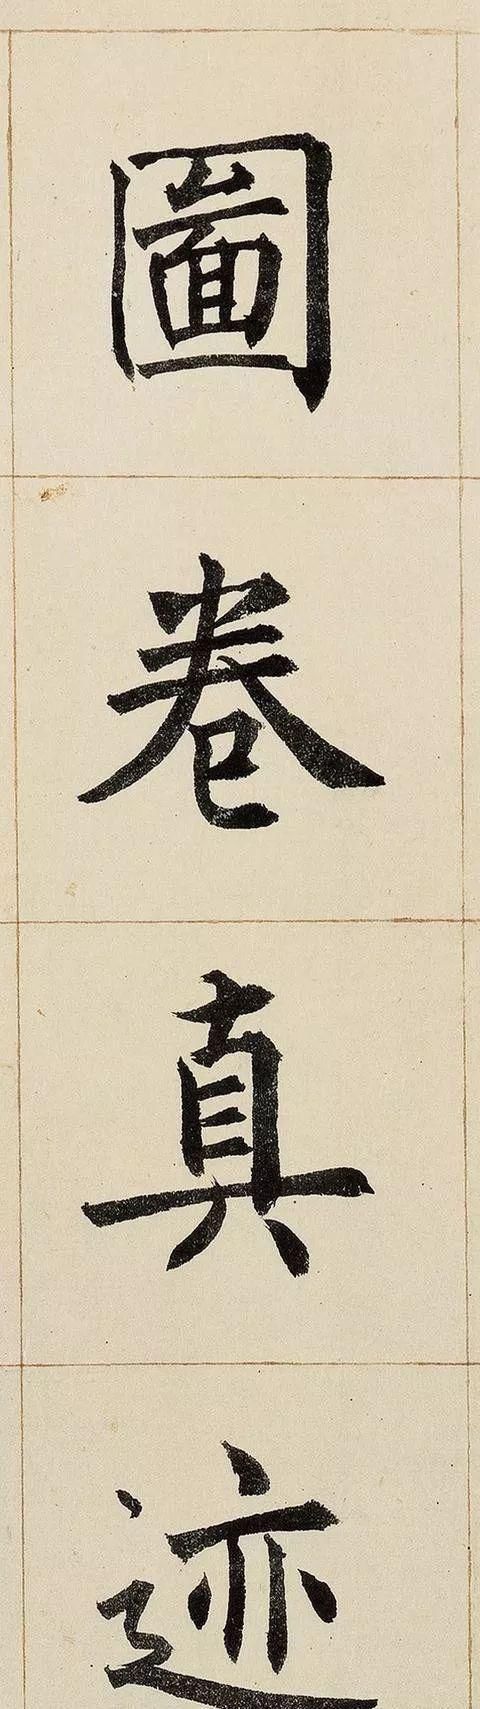 圖卷真迹